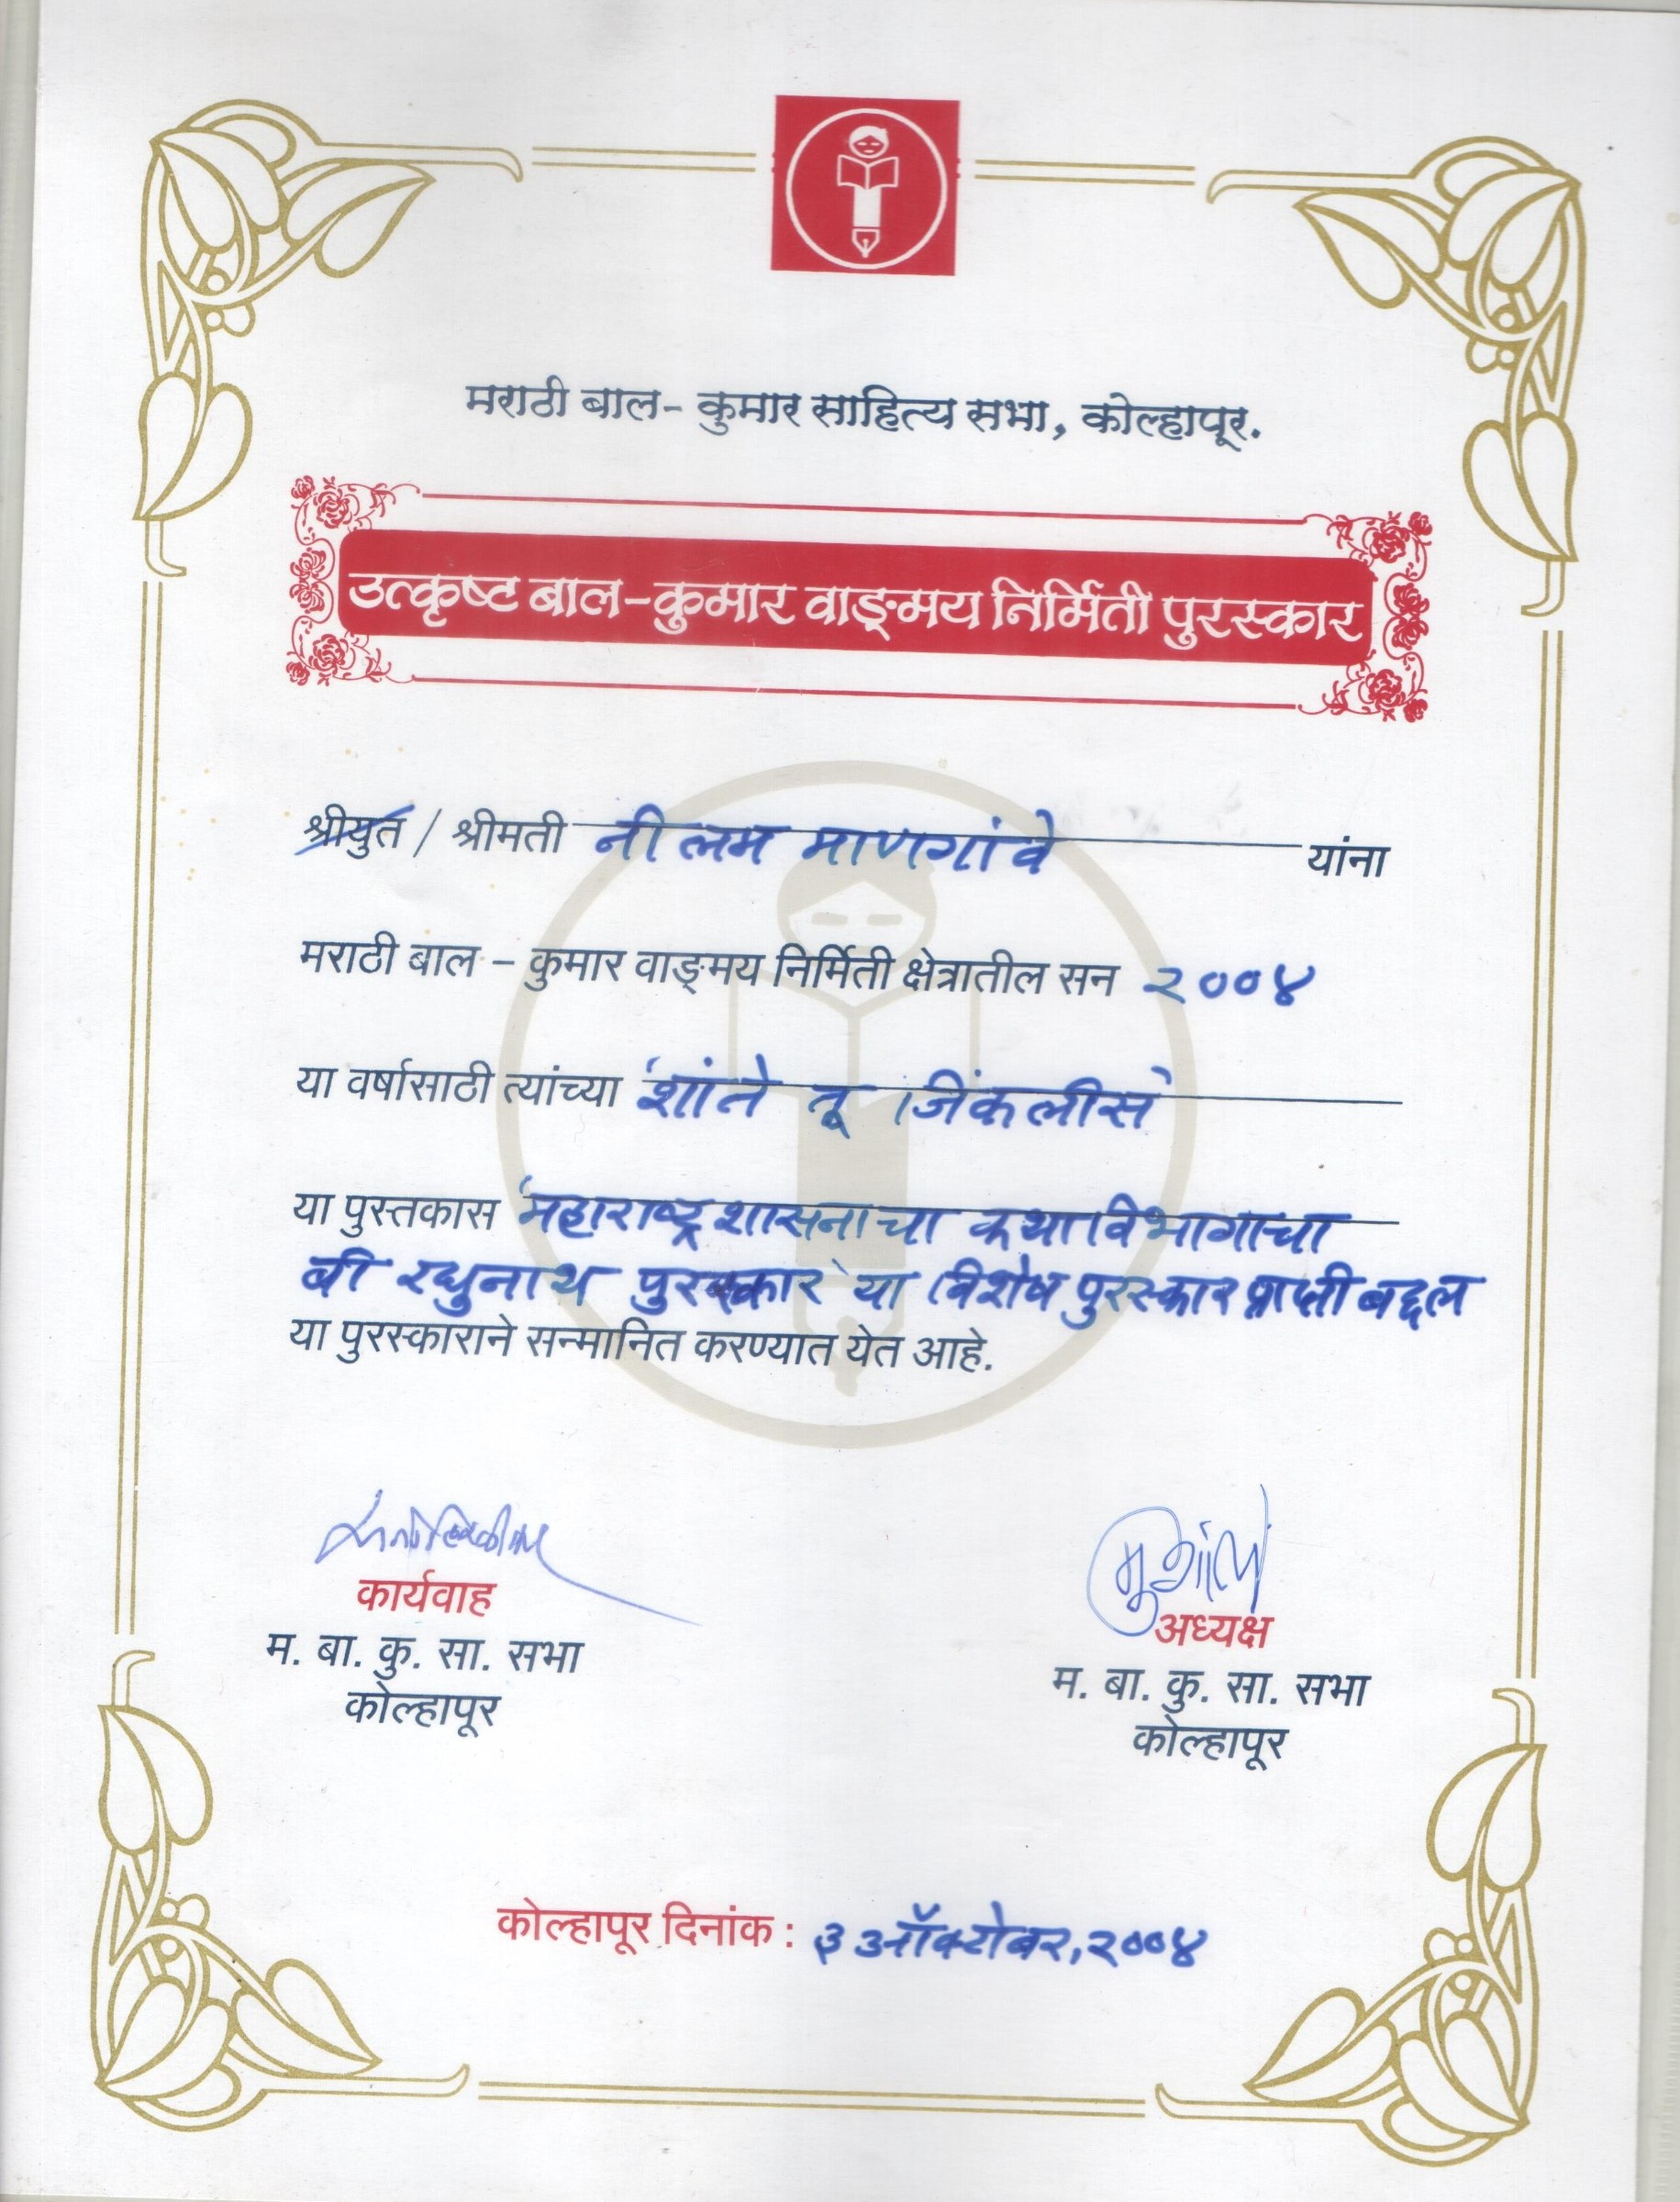 मराठी बाल- कुमार साहित्य सभा, कोल्हापूर.
उत्कृष्ट बाल-कुमार वाङ्मय निर्मिती पुरस्कार
श्रीयुत / श्रीमती नीलम माणगांवे यांना
मराठी बाल – कुमार वाङ्मय निर्मिती क्षेत्रातील सन २००४
या वर्षासाठी त्यांच्या 'शांते तू जिंकलीस'
या पुस्तकास 'महाराष्ट्र शासनाचा कथा विभागाचा
बी रघुनाथ पुरस्कार' या विशेष पुरस्कार प्राप्ती बद्दल
या पुरस्काराने सन्मानित करण्यात येत आहे.
कार्यवाह
म. बा. कु. सा. सभा
कोल्हापूर
अध्यक्ष
म. बा. कु. सा. सभा
कोल्हापूर
कोल्हापूर दिनांक : ३ ऑक्टोबर, २००४